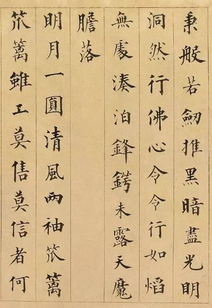 秉般若劔推黑暗盡光明
洞然行佛心令令行如熖
無處湊泊鋒鍔未露天魔
膽落
明月一圓清風兩袖笊籬
笊籬雖工莫售莫信者何